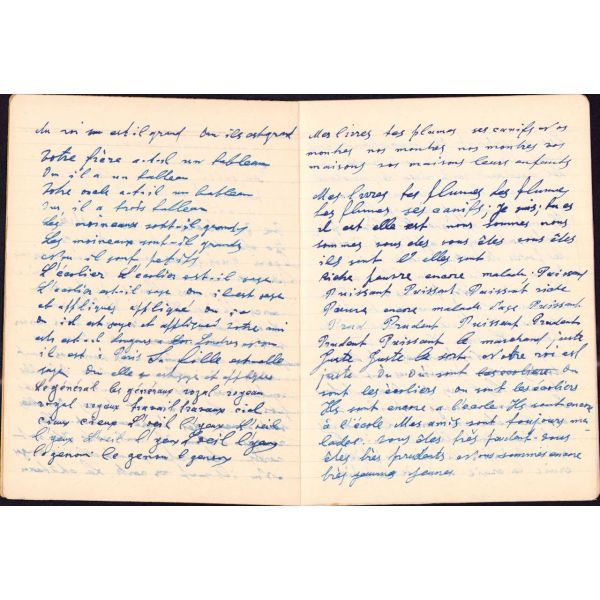 est-il grand Oui il est grand
Votre frère a-t-il un tableau
Oui il a un tableau
Votre oncle a-t-il un tableau
Oui il a trois tableau
Les moineaux sont-il grands
Les moineaux sont-il grands
non il sont petits
L'écolier L'écolier est-il sage
L'écolier est-il sage Oui il est sage
et appliqué appliqué ou
Oui il est sage et appliqué votre ami
est-il a Londres non
il est à Paris Sa fille est-elle
sage Oui elle et appliquée
Le général les généraux royal royaux
royal royaux travail travaux ciel
cieux cieux L'oeil l'yeux L'oeil
l'yeux L'oeil l'yeux L'oeil l'yeux
le genou le genou
Mes livres tes plumes ses canifs nos
montres nos montres nos montres vos
maisons vos maisons leurs enfants
Mes livres tes plumes tes plumes
tes plumes ses canifs; Je suis; tu es
il est elle est nous sommes nous
sommes vous êtes vous êtes
ils sont elles sont
riche pauvre encore malade Puissant
Puissant Puissant Puissant riche
Pauvre encore malade sage Puissant
Prud Prudent Puissant Prudents
Prudent Puissant le marchand juste
Juste Juste le sort Notre roi est
juste Ou Ou sont les écoliers Ou
sont les écoliers ou sont les écoliers
Ils sont encore a l'école Ils sont encore
à l'école. Mes amis sont toujours ma-
lades. vous êtes très vous
êtes très prudents Nous sommes encore
très jeunes jeunes